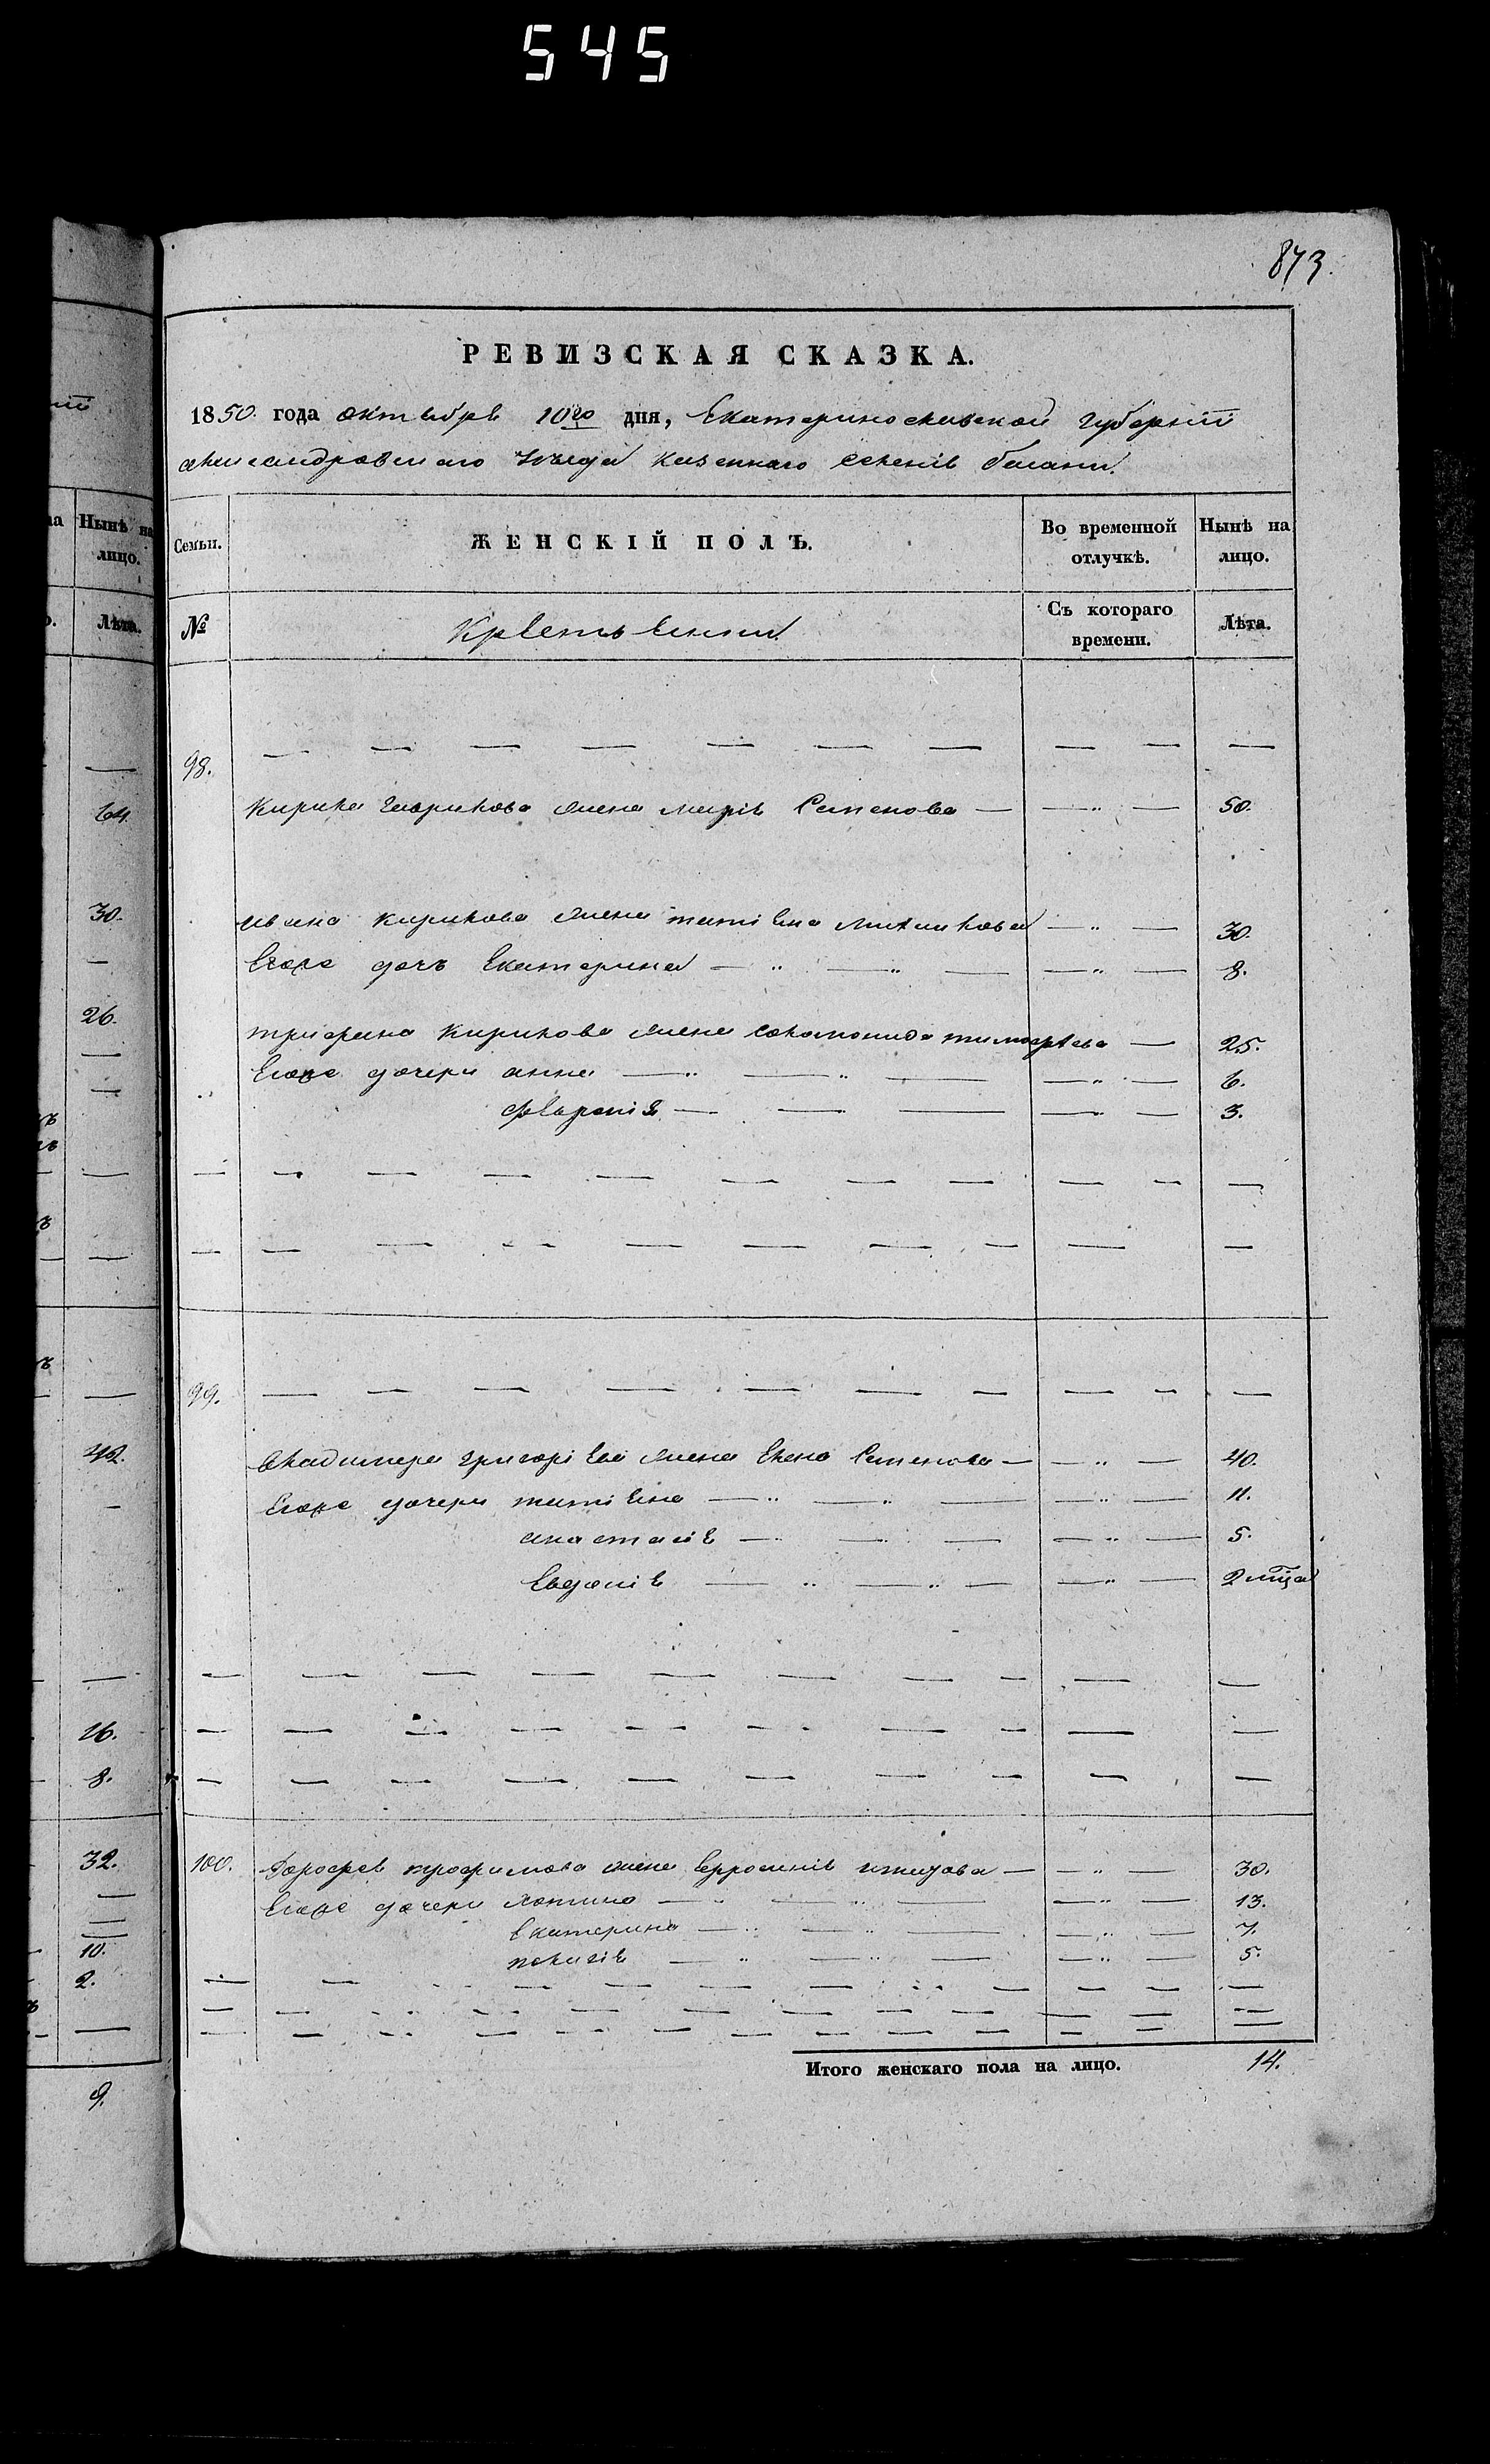 545
873.
РЕВИЗСКАЯ СКАЗКА.
1850. года октября 10го дня, Екатеринославской губернiи
александровскаго уезда казеннаго селенiя балки
Семьи. ЖЕНСКІЙ ПОЛЪ. Во временной отлучкѣ. Нынѣ на лицо.
№ Крестьянки Съ котораго времени. Лѣта.
98.
Кирика гаврикова жена марiя Семенова — — " — 50.
ивана Кирикова жена татiена — " — 30.
Егоже дочъ Екатерина — " — " — — " — 8.
трифана Кирикова жена соломонида тимофѣева — 25.
Егоже дочери анна — " — " — — " — 6.
февронiя — — — — " — 3.
99.
владимера григорiева жена Елена Семенова — — " — 40.
Егоже дочери татiена — " — " — — " — 11.
анастасiя — — — — " — 5.
Евдокiя — " — " — — " — 2 мца
100. Дорофея трофимова жена Ефросинiя — — " — 30.
Егоже дочери — " — " — — " — 13.
Екатерина — " — " — — " — 7.
пелагiя — " — " — — " — 5.
Итого женскаго пола на лицо. 14.
Нынѣ на лицо.
Лѣта.
64.
30.
26.
42.
16.
8.
32.
10.
2.
9.